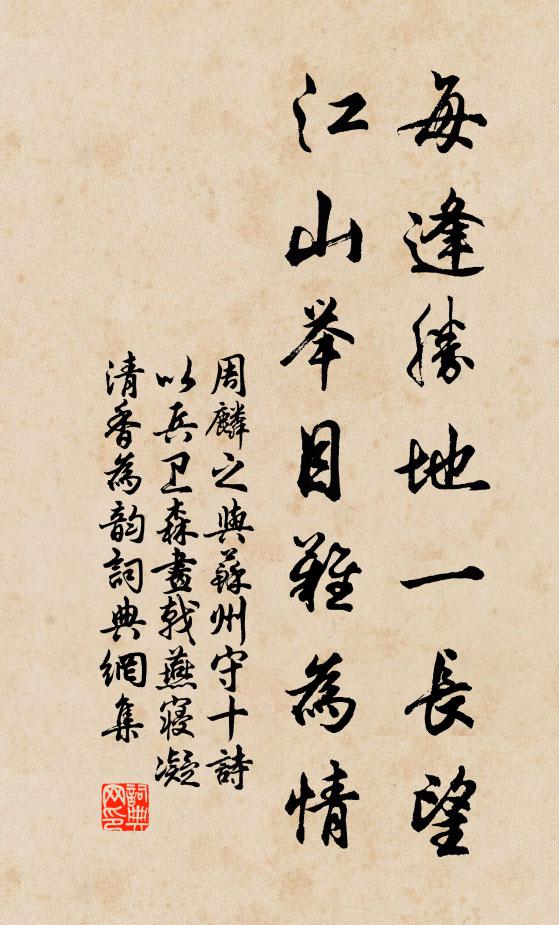 每逢勝地一長望
江山举目難為情
周麟之與蘇州守十詩
以兵卫森畫戟燕寢凝
清香為韵詞典網集
詞典
网印